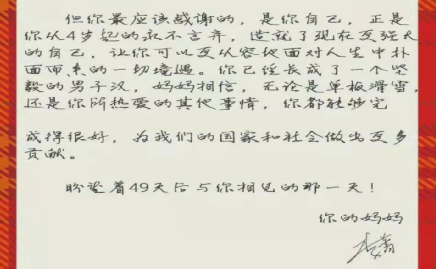 但你最应该感谢的，是你自己，正是
你从4岁起的永不言弃，造就了现在更强大
的自己，让你可以更从容地面对人生中扑
面而来的一切境遇。你已经长成了一个坚
毅的男子汉，妈妈相信，无论是单板滑雪，
还是你所热爱的其他事情，你都能够完
成得很好，为我们的国家和社会做出更多
贡献。
盼望着49天后与你相见的那一天！
你的妈妈